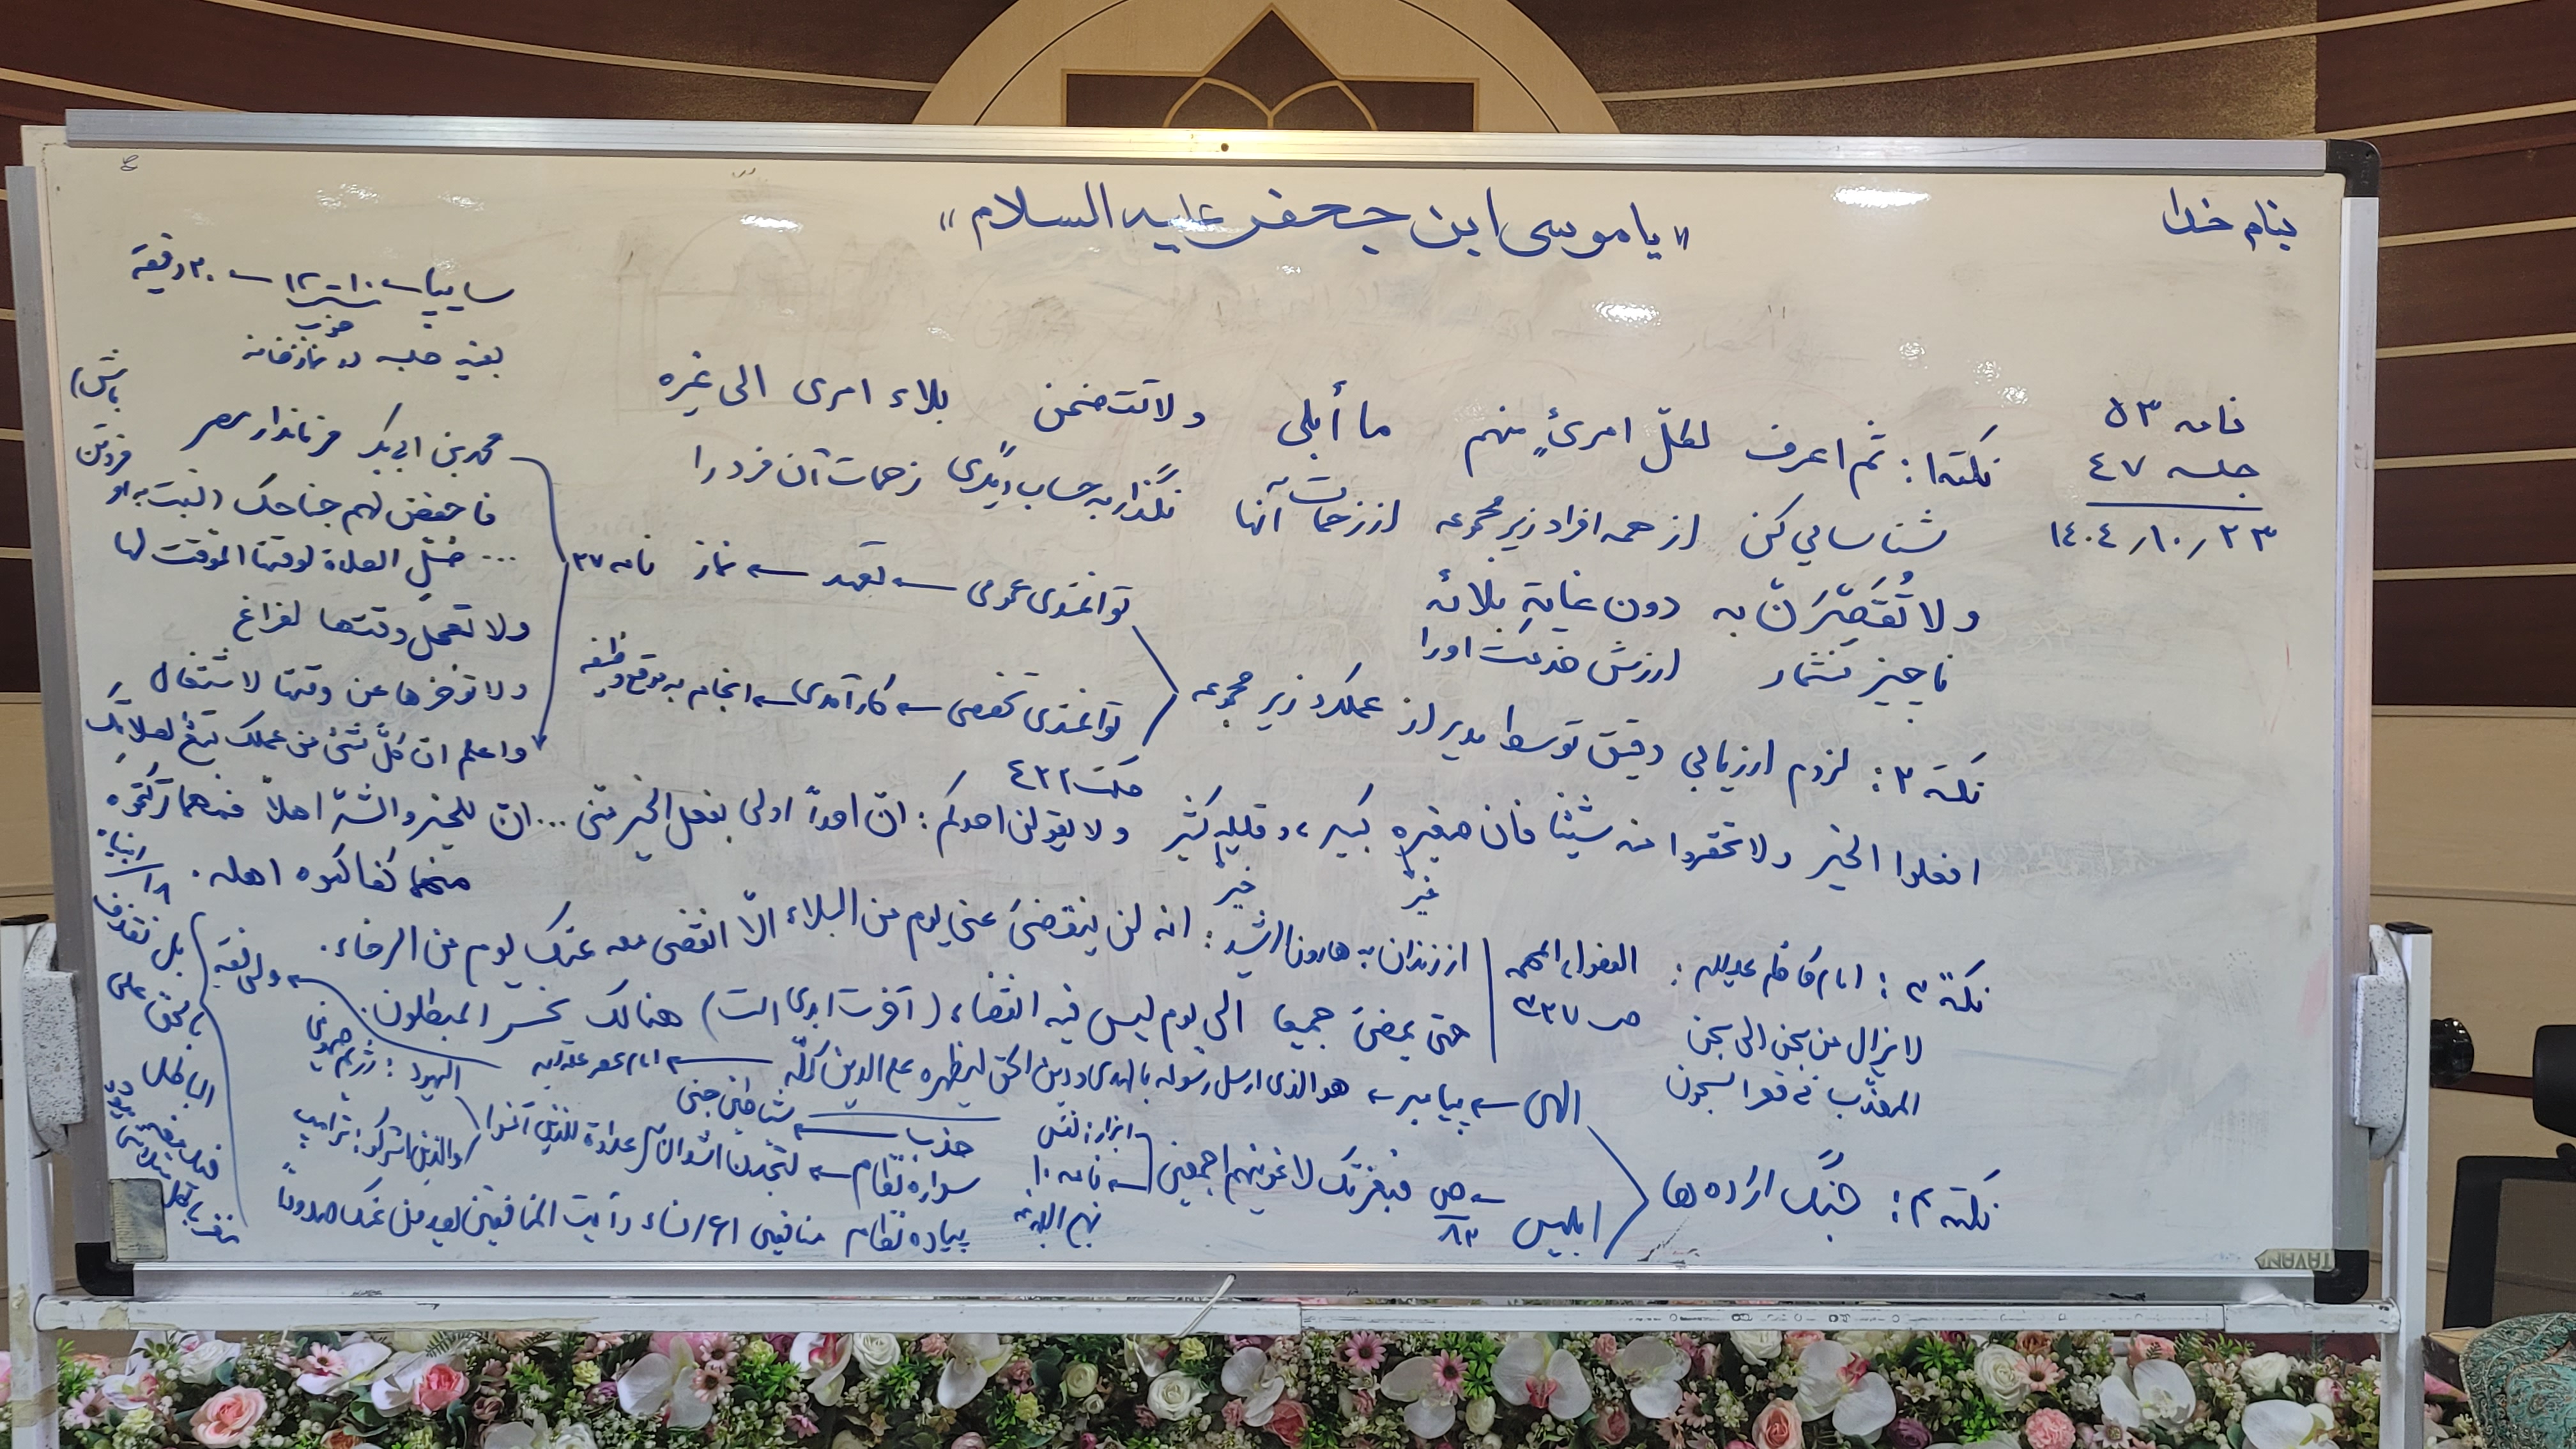 بنام خدا
«یا موسی ابن جعفر علیه السلام»
نامه ٥٣
جلسه ٤٧
١٤٠٤/١٠/٢٣
سایپا ← ١٠-١٢ ← ٢٠ دقیقه
بقیه جلسه در نمازخانه
نکته ١: ثم اعرف لکلّ امرئٍ منهم ما أبلی ولا تضمنن بلاء امری الی غیره
شناسایی کن از همه افراد زیرمجموعه از زحمات آنها نگذار به حساب دیگری زحمات آن فرد را
ولا تُقَصِّرَنّ به دون غایةِ بلائه
ناچیز نشمار ارزش خدمت او را
نکته ٢: لزوم ارزیابی دقیق توسط مدیر از عملکرد زیرمجموعه
توانمندی عمومی ← تعهد ← نماز نامه ٢٧
توانمندی تخصصی ← کارآمدی ← انجام به موقع وظیفه
محمد بن ابی بکر فرماندار مصر
فاخفض لهم جناحک (نسبت به او فروتن باش)
... صَلِّ الصلاة لوقتها الموقت لها
ولا تعجل وقتها لفراغ
ولا تؤخرها عن وقتها لاشتغال
واعلم ان کلَّ شئ من عملک تبعٌ لصلاتک
حکمت ٤٢٢
افعلوا الخیر ولا تحقروا منه شیئا فان صغیره کبیر، و قلیله کثیر ولا یقولن احدکم: ان احداً اولی بفعل الخیر منی ... ان للخیر و الشرّ اهلاً فمهما ترکتموه
منهما کفاکموه اهله.
خیر خیر
نکته ٣: امام کاظم علیه السلام: الفصول المهمه
ص ٢٢٧
لا یزال من سجن الی سجن
المعذّب فی قعر السجون
از زندان به هارون الرشید: انه لن ینقضیَ عنی یوم من البلاء الّا انقضی معه عنک یوم من الرخاء.
حتی یمضیَ جمیعا الی یوم لیس فیه انقضاء (آخرت ابدی است) هنالک یخسر المبطلون.
نکته ٤: جنگ اراده ها
الهی ← پیامبر ← هو الذی ارسل رسوله بالهدی و دین الحق لیظهره علی الدین کلّه ← امام عصر ← ولی فقیه
ابلیس ← ص ٨٢ فبعزتک لاغوینهم اجمعین
ابزار: نفس
← نامه ١٠
نهج البلاغه
جذب ← شیاطین جنی
سواره نظام ← لتجدن اشد الناس عداوة للذین آمنوا
الیهود: رژیم صهیونی
والذین اشرکوا: ترامپ
پیاده نظام منافقین ٦١ نساء رأیت المنافقین یصدون عنک صدوداً
انبیاء ١٨
بل نقذف
بالحق علی
الباطل